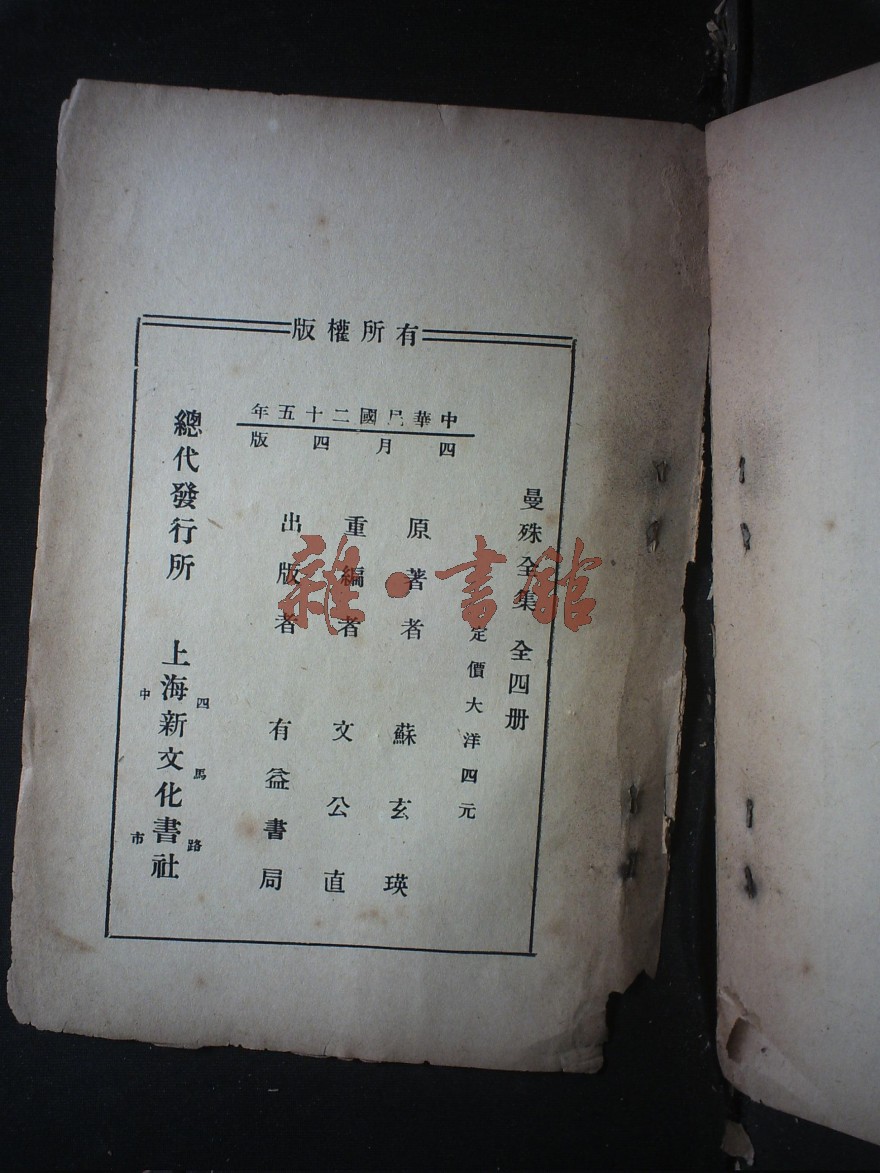 有所權版
中華民國二十五年
四月四版
曼殊全集 全四册
定價大洋四元
原著者 蘇玄瑛
重編者 文公直
出版者 有益書局
總代發行所 上海新文化書社
四馬路
中市
雜·書館